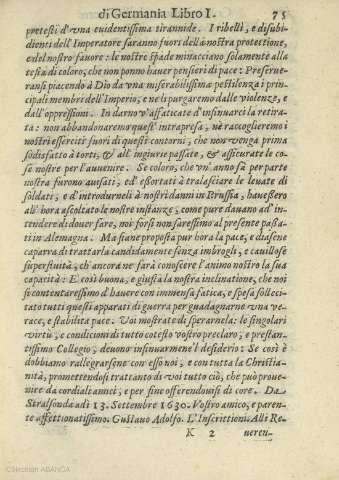 di Germania Libro I. 75
pretesti d'vna euidentissima tirannide. I ribelli, e disubi-
dienti dell'Imperatore saranno fuori della nostra protettione,
e del nostro fauore: le nostre spade minacciano solamente alla
testa di coloro, che non ponno hauer pensieri di pace: Preserue-
ransi piacendo à Dio da vna miserabilissima pestilenza i prin-
cipali membri dell'Imperio, e ne li purgaremo dalle violenze, e
dall'oppressioni. In darno v'affaticate d'insinuarci la retira-
ta: non abbandonaremo quest'intrapresa, nè raccoglieremo i
nostri esserciti fuori di questi contorni, che non venga prima
sodisfatto à torti, & all'ingiurie passate, & assicurate le co-
se nostre per l'auuenire. Se coloro, che vn'anno fà per parte
nostra furono auisati, ed essortati à tralasciare le leuate di
soldati, e d'introdurneli à nostri danni in Prussia, hauessero
all'hora ascoltato le nostre instanze, come pure dauano ad in-
tendere di douer fare, noi forsi non saressimo al presente passa-
ti in Alemagna. Ma siane proposta pur hora la pace, e diasene
caparra di trattarla candidamente senza imbrogli, e cauillose
superstuità, ch'ancora ne farà conoscere l'animo nostro la sua
capacità: E così buona, e giusta la nostra inclinatione, che noi
si contentaressimo d'hauere con immensa fatica, e spesa solleci-
tato tutti questi apparati di guerra per guadagnarne vna ve-
race, e stabilita pace. Voi mostrate di sperarnela: le singolari
virtù, e condicioni di tutto cotesto vostro preclaro, e prestan-
tissimo Collegio, deuono insinuarmene l'desiderio: Se così è
dobbiamo rallegrarsene con esso noi, e con tutta la Christia-
nità, promettendosi trattanto di voi tutto ciò, che può proue-
nire da cordiali amici, e per fine offerendouisi di core. Da
Stralsonda adi 13. Settembre 1630. Vostro amico, e paren-
te affettionatissimo. Gustauo Adolfo. L'Inscrittioni. Alli Re-
K 2 ueren-
Colección ABANCA